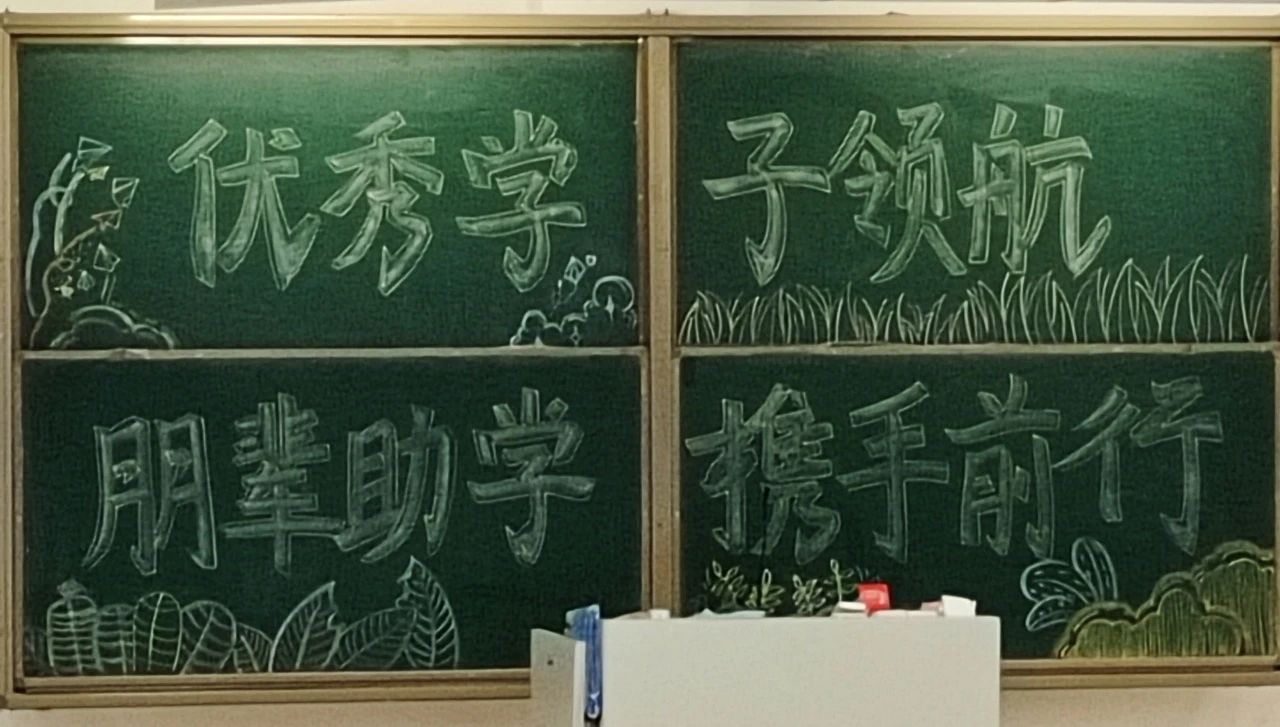 优秀学子领航
朋辈助学携手前行